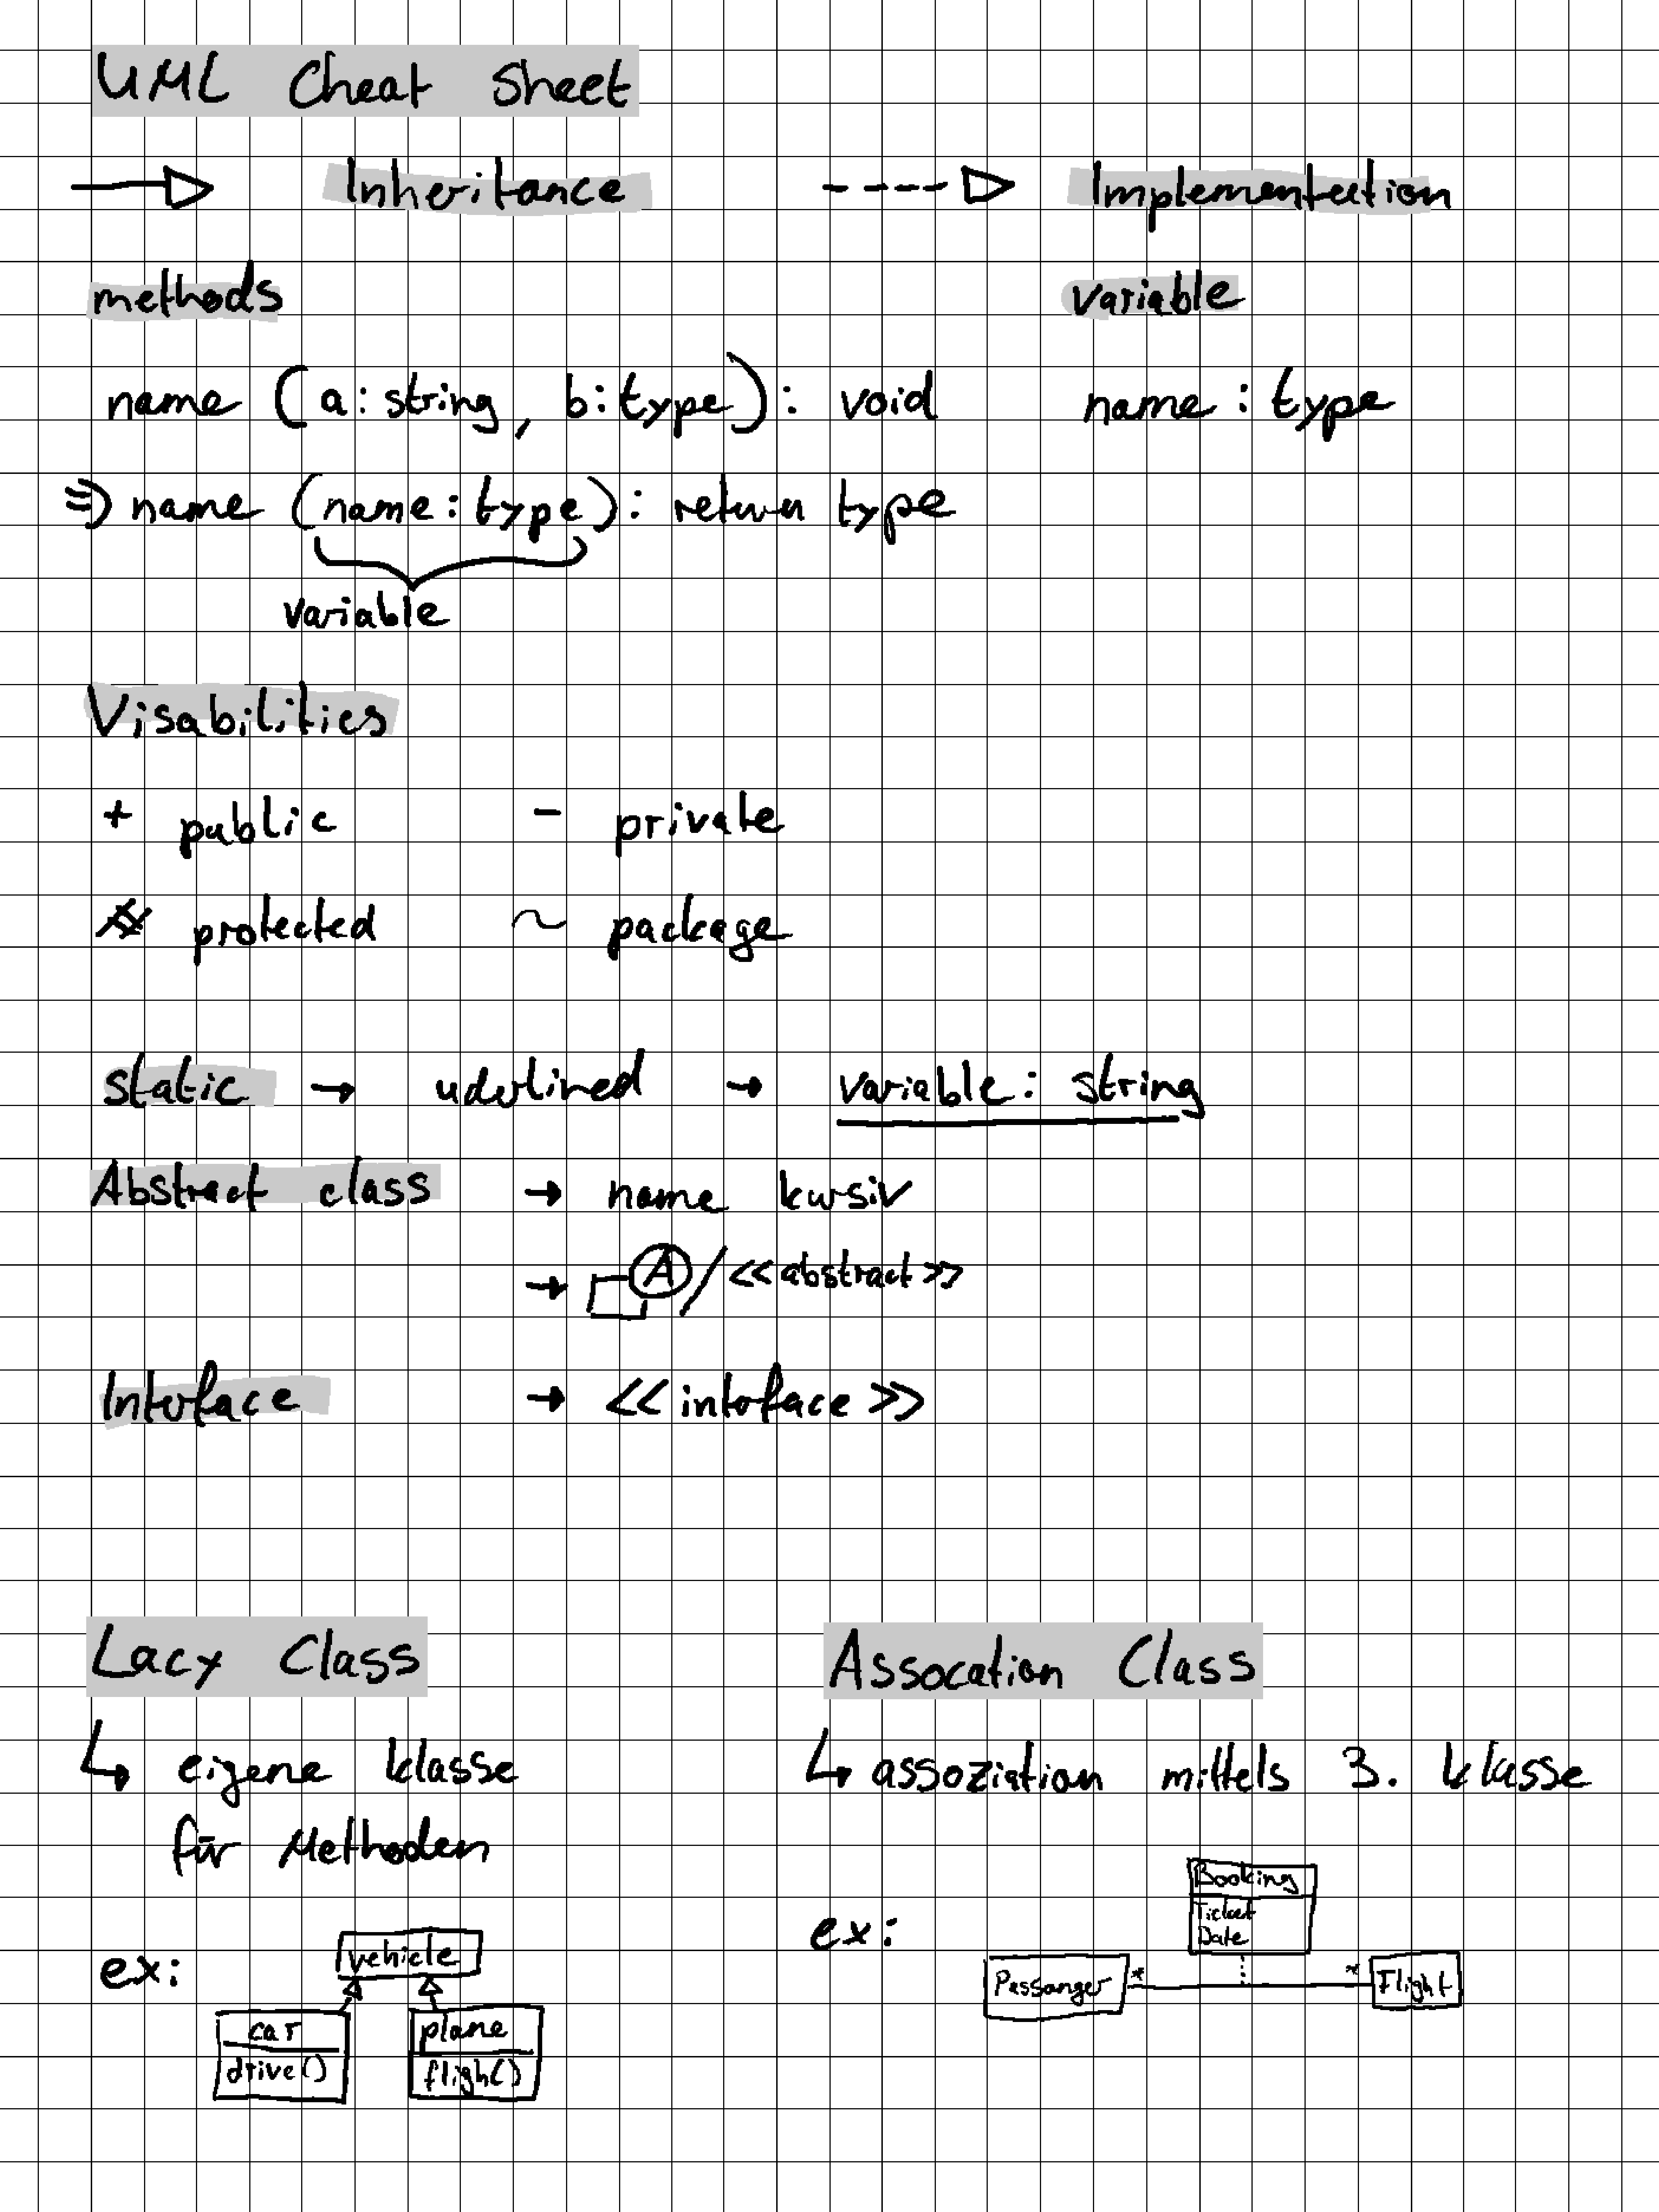 UML Cheat Sheet
Inheritance
Implementation
methods
variable
name (a: string, b: type): void
name : type
⇒ name (name: type): return type
variable
Visabilities
+ public
- private
# protected
~ package
static → uderlined → variable: string
Abstract class → name kursiv
→ A / <<abstract>>
Interface → <<interface>>
Lacy Class
↳ eigene klasse
für Methoden
ex:
vehicle
car
drive()
plane
fligh()
Assocation Class
↳ assoziation mittels 3. klasse
ex:
Booking
Ticket
Date
Passanger *
* Flight